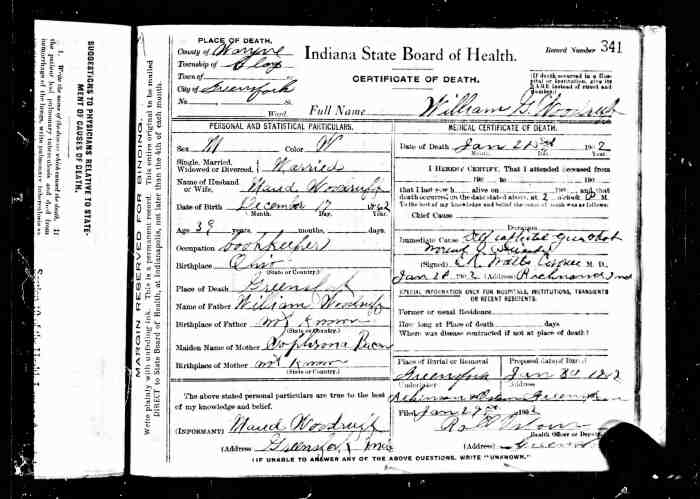 SUGGESTIONS TO PHYSICIANS RELATIVE TO STATE-
MENT OF CAUSES OF DEATH.
1. Write the name of the disease which caused the death. If
the patient had pulmonary tuberculosis and died from
hemorrhage of the lungs, write pulmonary tuberculosis as
MARGIN RESERVED FOR BINDING.
Write plainly with unfading ink. This is a permanent record. This entire original to be mailed
DIRECT to State Board of Health, at Indianapolis, not later than the 4th of each month.
PLACE OF DEATH,
County of Wayne
Township of Clay
Town of
City of Greensfork
No. St.
Ward.
Indiana State Board of Health.
CERTIFICATE OF DEATH.
Record Number 341
(If death occurred in a Hos-
pital or Institution, give its
NAME instead of street and
number.)
Full Name William G. Woodruff
PERSONAL AND STATISTICAL PARTICULARS.
Sex M Color W
Single, Married,
Widowed or Divorced, Married
Name of Husband
or Wife, Maud Woodruff
Date of Birth December 17 1862
Month. Day. Year.
Age 39 years, months, days.
Occupation bookkeeper
Birthplace Ohio
(State or Country.)
Place of Death Greensfork
Name of Father William Woodruff
Birthplace of Father not known
(State or Country.)
Maiden Name of Mother
Birthplace of Mother not known
(State or Country.)
The above stated personal particulars are true to the best
of my knowledge and belief.
(INFORMANT) Maud Woodruff
(Address) Greensfork Ind
MEDICAL CERTIFICATE OF DEATH.
Date of Death Jan 1902
Month. Day. Year.
I HEREBY CERTIFY, That I attended deceased from
190 to 190
that I last saw h alive on 190 and that
death occurred on the date stated above, at 2 o'clock P M.
To the best of my knowledge and belief the cause of death was as follows:
Chief Cause
Duration
Immediate Cause Self inflicted gun shot
wound Suicide
(Signed) M. D.
Jan 2 1902 (Address) Richmond Ind
SPECIAL INFORMATION ONLY FOR HOSPITALS, INSTITUTIONS, TRANSIENTS
OR RECENT RESIDENTS.
Former or usual Residence
How long at Place of death days
Where was disease contracted if not at place of death?
Place of Burial or Removal Proposed date of Burial
Greensfork Jan 1902
Undertaker Address
Greensfork
Filed Jan 1902
Health Officer or Deputy
(Address)
(IF UNABLE TO ANSWER ANY OF THE ABOVE QUESTIONS, WRITE "UNKNOWN."